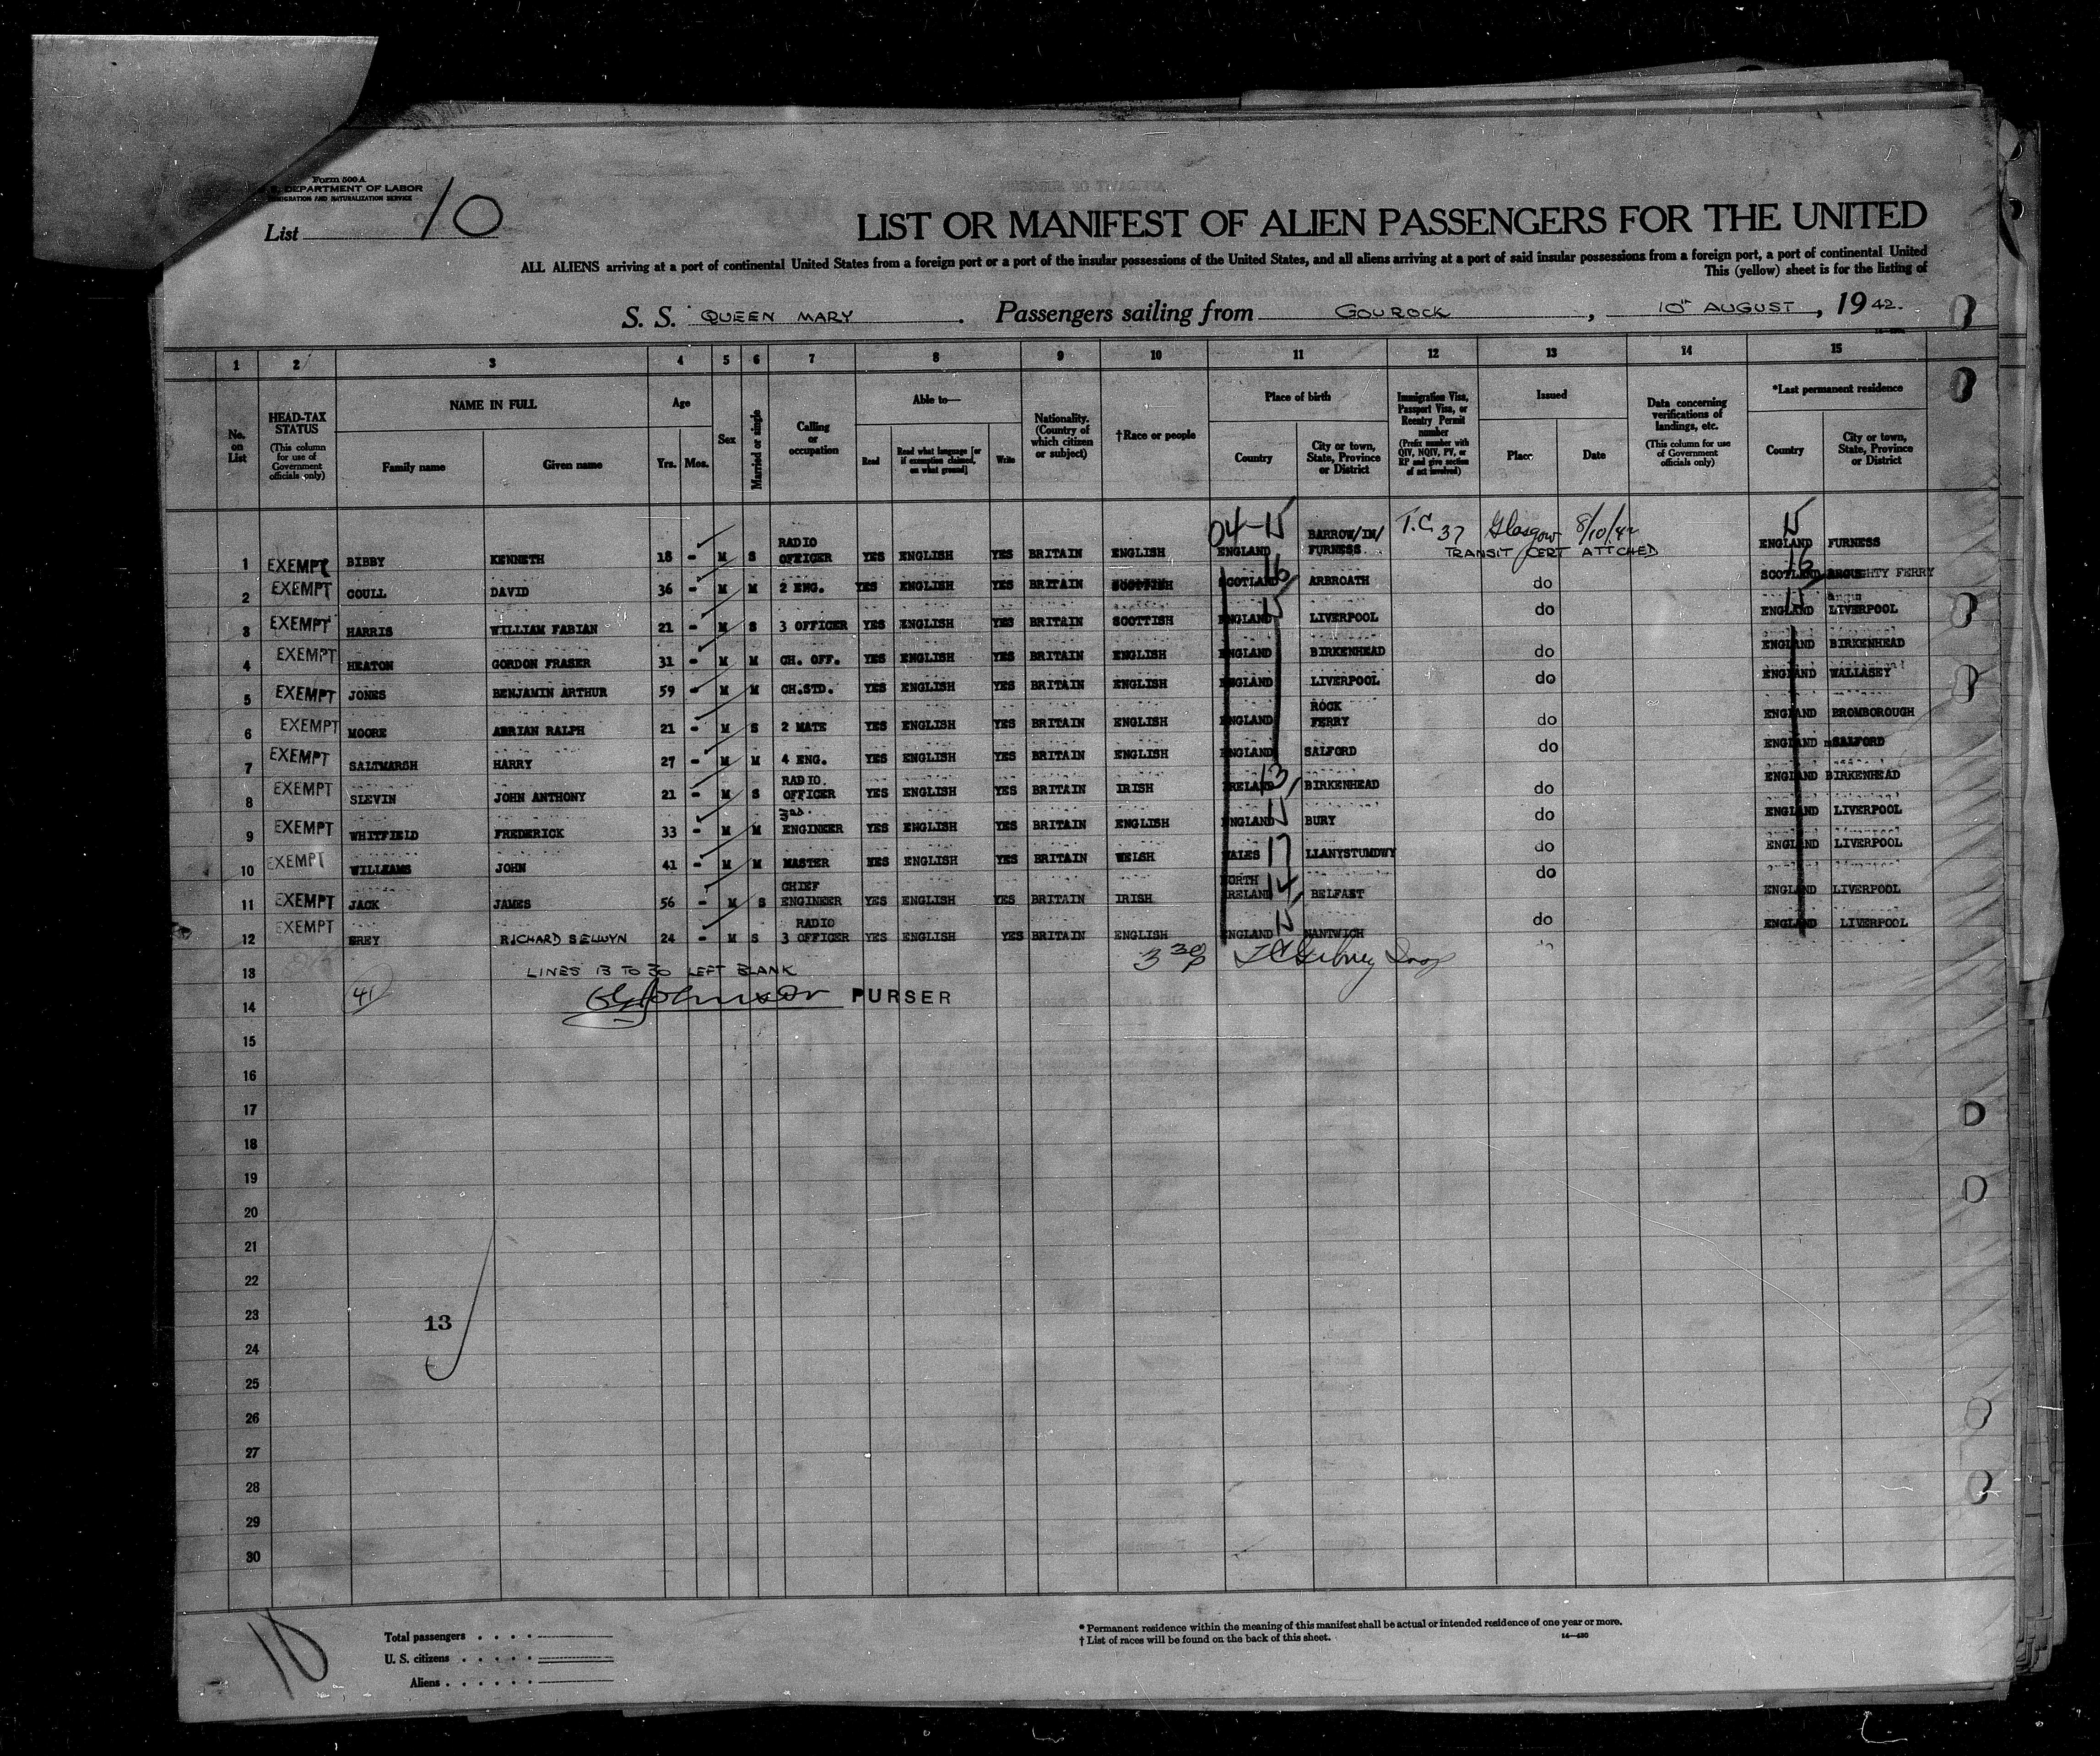 Form 500 A
DEPARTMENT OF LABOR
IMMIGRATION AND NATURALIZATION SERVICE
List 10
LIST OR MANIFEST OF ALIEN PASSENGERS FOR THE UNITED
ALL ALIENS arriving at a port of continental United States from a foreign port or a port of the insular possessions of the United States, and all aliens arriving at a port of said insular possessions from a foreign port, a port of continental United
This (yellow) sheet is for the listing of
S. S. QUEEN MARY. Passengers sailing from GOUROCK, 10th AUGUST, 19 42.
1 2 3 4 5 6 7 8 9 10 11 12 13 14 15
No. on List
HEAD-TAX STATUS (This column for use of Government officials only)
NAME IN FULL
Family name Given name
Age
Yrs. Mos.
Sex
Married or single
Calling or occupation
Able to—
Read Read what language [or if exemption claimed, on what ground] Write
Nationality. (Country of which citizen or subject)
†Race or people
Place of birth
Country City or town, State, Province or District
Immigration Visa, Passport Visa, or Reentry Permit number (Prefix number with QIV, NQIV, PV, or RP and give section of act involved)
Issued
Place Date
Data concerning verifications of landings, etc. (This column for use of Government officials only)
*Last permanent residence
Country City or town, State, Province or District
04-15 T.C. 37 Glasgow 8/10/42 15
1 EXEMPT BIBBY KENNETH 18 - M S RADIO OFFICER YES ENGLISH YES BRITAIN ENGLISH ENGLAND BARROW/IN/ FURNESS. TRANSIT CERT ATTCHED ENGLAND FURNESS
2 EXEMPT COULL DAVID 36 - M M 2 ENG. YES ENGLISH YES BRITAIN SCOTTISH SCOTLAND 16 ARBROATH do SCOTLAND 16 FERRY
3 EXEMPT HARRIS WILLIAM FABIAN 21 - M S 3 OFFICER YES ENGLISH YES BRITAIN SCOTTISH ENGLAND 15 LIVERPOOL do ENGLAND 15 LIVERPOOL
4 EXEMPT HEATON GORDON FRASER 31 - M M CH. OFF. YES ENGLISH YES BRITAIN ENGLISH ENGLAND BIRKENHEAD do ENGLAND BIRKENHEAD
5 EXEMPT JONES BENJAMIN ARTHUR 59 - M M CH.STD. YES ENGLISH YES BRITAIN ENGLISH ENGLAND LIVERPOOL do ENGLAND WALLASEY
6 EXEMPT MOORE ADRIAN RALPH 21 - M S 2 MATE YES ENGLISH YES BRITAIN ENGLISH ENGLAND ROCK FERRY do ENGLAND BROMBOROUGH
7 EXEMPT SALTMARSH HARRY 27 - M M 4 ENG. YES ENGLISH YES BRITAIN ENGLISH ENGLAND SALFORD do ENGLAND SALFORD
8 EXEMPT SLEVIN JOHN ANTHONY 21 - M S RADIO. OFFICER YES ENGLISH YES BRITAIN IRISH IRELAND 13 BIRKENHEAD do ENGLAND BIRKENHEAD
9 EXEMPT WHITFIELD FREDERICK 33 - M M 3RD. ENGINEER YES ENGLISH YES BRITAIN ENGLISH ENGLAND 15 BURY do ENGLAND LIVERPOOL
10 EXEMPT WILLIAMS JOHN 41 - M M MASTER YES ENGLISH YES BRITAIN WELSH WALES 17 LLANYSTUMDWY do ENGLAND LIVERPOOL
11 EXEMPT JACK JAMES 56 - M S CHIEF ENGINEER YES ENGLISH YES BRITAIN IRISH NORTH IRELAND 14 BELFAST do ENGLAND LIVERPOOL
12 EXEMPT BREY RICHARD SELWYN 24 - M S RADIO 3 OFFICER YES ENGLISH YES BRITAIN ENGLISH ENGLAND 15 NANTWICH do ENGLAND LIVERPOOL
13 LINES 13 TO 30 LEFT BLANK 3 30 p
14 41 PURSER
15
16
17
18
19
20
21
22
23
13
24
25
26
27
28
29
30
10
Total passengers
U. S. citizens
Aliens
* Permanent residence within the meaning of this manifest shall be actual or intended residence of one year or more.
† List of races will be found on the back of this sheet.